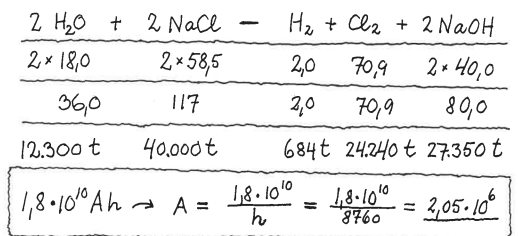 2 H₂O + 2 NaCl — H₂ + Cl₂ + 2 NaOH
2×18,0 2×58,5 2,0 70,9 2×40,0
36,0 117 2,0 70,9 80,0
12.300 t 40.000 t 684 t 24.240 t 27.350 t
1,8·10¹⁰ Ah → A = 1,8·10¹⁰/h = 1,8·10¹⁰/8760 = 2,05·10⁶